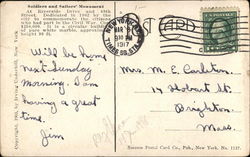 Soldiers and Sailors' Monument
At Riverside Drive and 89th
Street. Dedicated in 1902 by the
city to commemorate the citizens
who had part in the Civil War. Cost
$250,000. It is a circular building
of pure white marble, approximate
height 90 ft.
NEW YORK, N.Y.
MAR
930 PM
1917
TIMES SQ. STA.
POST CARD
Will be home
next Sunday
morning. I am
having a great
time.
Jim
Mrs. M. E. Carleton.
14 Hobart St.
Brighton.
Mass.
Success Postal Card Co., Pub., New York. No. 1137.